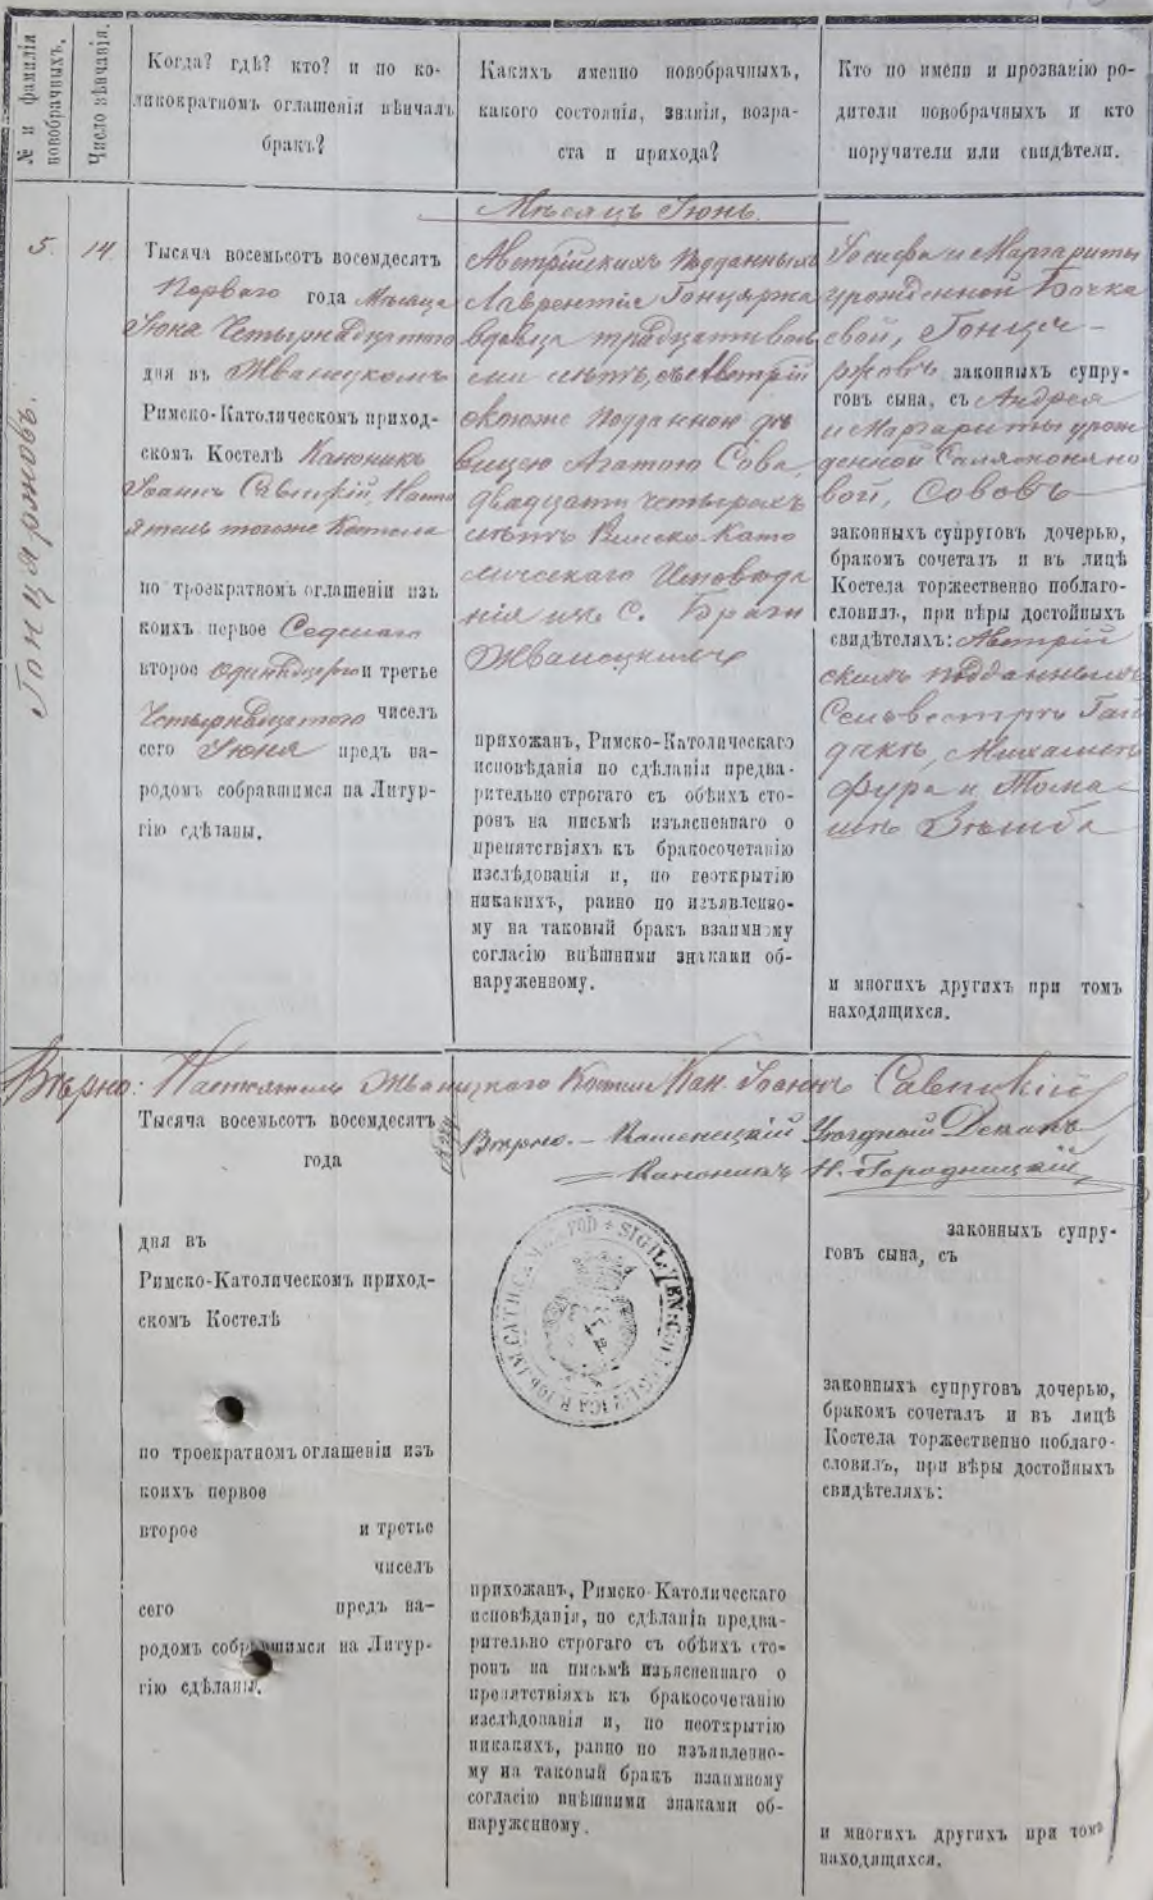 № и фамилія новобрачныхъ.
Число вѣнчанія.
Когда? гдѣ? кто? и по ко-
ликократномъ оглашеніи вѣнчалъ
бракъ?
Какихъ именно новобрачныхъ,
какого состоянія, званія, возра-
ста и прихода?
Кто по имени и прозванію ро-
дители новобрачныхъ и кто
поручители или свидѣтели.
Мѣсяцъ Іюнь.
5.
Гонцяржовъ.
14
Тысяча восемьсотъ восемдесятъ
Перваго года Мѣсяца
Іюня Четырнадцатого
дня въ Жванецкомъ
Римско-Католическомъ приход-
скомъ Костелѣ Каноникъ
Іоаннъ Савицкій, Насто
ятель тогоже Костела
по троекратномъ оглашеніи изъ
коихъ первое Седмаго
второе одинадцатого и третье
Четырнадцатого чиселъ
сего Іюня предъ на-
родомъ собравшимся на Литур-
гію сдѣланы.
Австрійскихъ Подданныхъ
Лаврентія Гонцяржа
вдовца тридцати вось
ми лѣтъ, съ Австрій
скоюже подданною дѣ
вицею Агатою Сова,
двадцати четырехъ
лѣтъ Римско-Като
лическаго Исповѣда
нія изъ С. Браги
Жванецкихъ
прихожанъ, Римско-Католическаго
исповѣданія по сдѣланіи предва-
рительно строгаго съ обѣихъ сто-
ронъ на письмѣ изъясненнаго о
препятствіяхъ къ бракосочетанію
изслѣдованія и, по неоткрытію
никакихъ, равно по изъявленно-
му на таковый бракъ взаимному
согласію внѣшними знаками об-
наруженному.
Іосифа и Маргариты
урожденной Бочка
свой, Гонця-
ржовъ законныхъ супру-
говъ сына, съ Андрея
и Маргариты урож
денной
вой, Сововъ
законныхъ супруговъ дочерью,
бракомъ сочеталъ и въ лицѣ
Костела торжественно поблаго-
словилъ, при вѣры достойныхъ
свидѣтеляхъ: Австрій
скихъ подданныхъ
Сельвестръ Гай
дакъ, Михаилъ
Фура и Тома
шъ
и многихъ другихъ при томъ
находящихся.
Вѣрно: Настоятель Жванецкаго Костела Кан. Іоаннъ Савицкій
Тысяча восемьсотъ восемдесятъ
года
Вѣрно. – Каменецкій Уѣздный Деканъ
Каноникъ Н. Городницкій
дня въ
Римско-Католическомъ приход-
скомъ Костелѣ
по троекратномъ оглашеніи изъ
коихъ первое
второе и третье
чиселъ
сего предъ на-
родомъ собравшимся на Литур-
гію сдѣланы.
прихожанъ, Римско-Католическаго
исповѣданія, по сдѣланіи предва-
рительно строгаго съ обѣихъ сто-
ронъ на письмѣ изъясненнаго о
препятствіяхъ къ бракосочетанію
изслѣдованія и, по неоткрытію
никакихъ, равно по изъявленно-
му на таковый бракъ взаимному
согласію внѣшними знаками об-
наруженному.
законныхъ супру-
говъ сына, съ
законныхъ супруговъ дочерью,
бракомъ сочеталъ и въ лицѣ
Костела торжественно поблаго-
словилъ, при вѣры достойныхъ
свидѣтеляхъ:
и многихъ другихъ при томъ
находящихся.